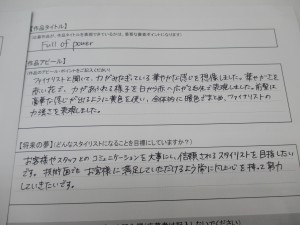 【作品タイトル】
Full of power
作品アピール
ファイナリストと聞いて、力がみなぎっている華やかな感じを想像しました。華やかさを
赤い花で、力があふれる様子を目から赤い広がる白で表現しました。前髪は、
豪華な感じが出るように黄色を使い、全体的に暖色でまとめ、ファイナリストの
力強さを表現しました。
【将来の夢】(どんなスタイリストになることを目標にしていますか?)
お客様やスタッフとのコミュニケーションを大事にし、信頼されるスタイリストを目指したい
です。技術面でもお客様に満足していただけるよう常に向上心を持って努力
していきたいです。